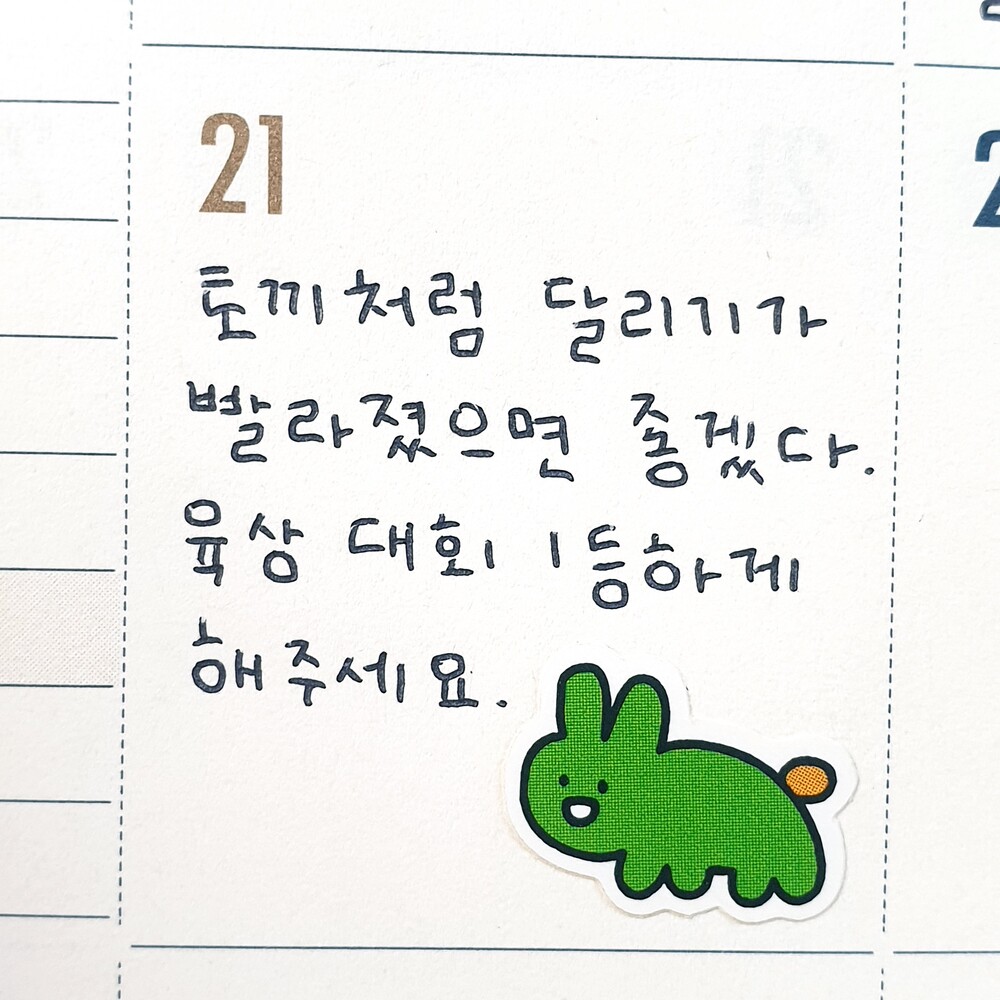 21
토끼처럼 달리기가
빨라졌으면 좋겠다.
육상 대회 1등하게
해주세요.
2